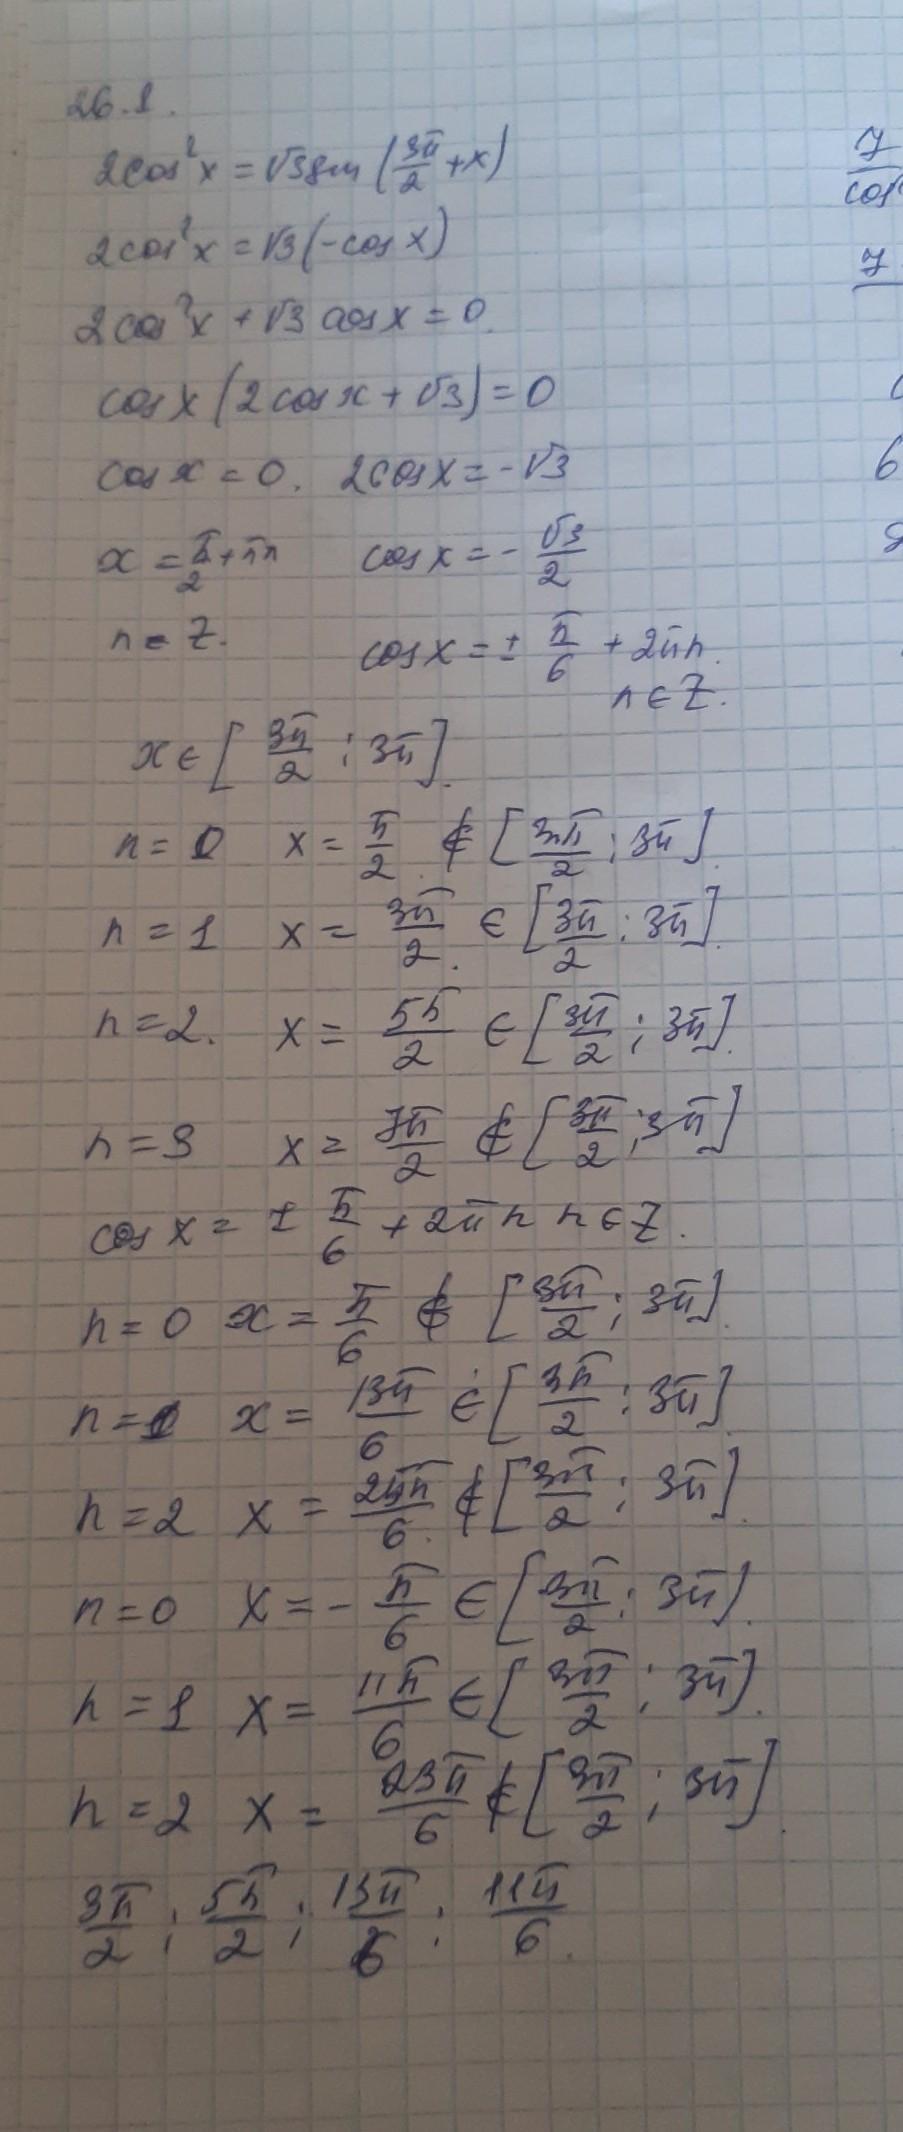 26.1.
2cos²x = √3 sin (3π/2 + x)
2cos²x = √3 (-cos x)
2cos²x + √3 cos x = 0.
cos x (2cos x + √3) = 0
cos x = 0. 2cos x = -√3
x = π/2 + πn cos x = - √3/2
n = Z. cos x = ± π/6 + 2πn.
n ∈ Z.
x ∈ [3π/2 ; 3π].
n = 0 x = π/2. ∉ [3π/2 ; 3π].
n = 1 x = 3π/2. ∈ [3π/2 ; 3π].
n = 2. x = 5π/2 ∈ [3π/2 ; 3π].
n = 3 x = 7π/2 ∉ [3π/2 ; 3π]
cos x = ± π/6 + 2πn n ∈ Z.
n = 0 x = π/6 ∉ [3π/2 ; 3π].
n = 1 x = 13π/6 ∈ [3π/2 ; 3π].
n = 2 x = 25π/6. ∉ [3π/2 ; 3π].
n = 0 x = - π/6 ∈ [3π/2 ; 3π].
n = 1 x = 11π/6 ∈ [3π/2 ; 3π].
n = 2 x = 23π/6 ∉ [3π/2 ; 3π].
3π/2 ; 5π/2 ; 13π/6 ; 11π/6.
7
cos
7
6